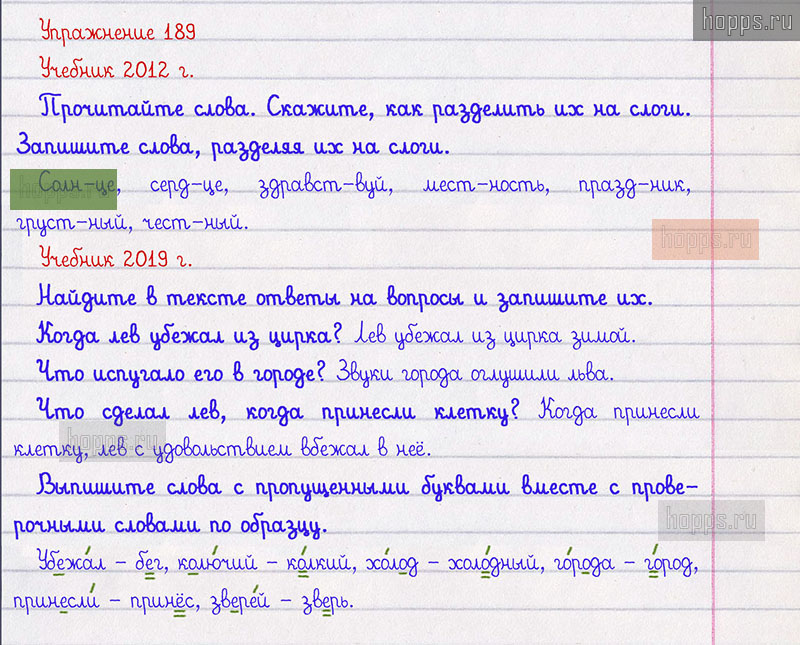 hopps.ru
Упражнение 189
Учебник 2012 г.
Прочитайте слова. Скажите, как разделить их на слоги.
Запишите слова, разделяя их на слоги.
Солн-це, серд-це, здравст-вуй, мест-ность, празд-ник,
hopps.ru
груст-ный, чест-ный.
hopps.ru
Учебник 2019 г.
Найдите в тексте ответы на вопросы и запишите их.
Когда лев убежал из цирка? Лев убежал из цирка зимой.
Что испугало его в городе? Звуки города оглушили льва.
Что сделал лев, когда принесли клетку? Когда принесли
клетку, лев с удовольствием вбежал в неё.
hopps.ru
Выпишите слова с пропущенными буквами вместе с прове-
рочными словами по образцу.
hopps.ru
Убежа́л - бег, колю́чий - ко́лкий, хо́лод - холо́дный, го́рода - го́род,
принесли́ - принёс, звере́й - зверь.